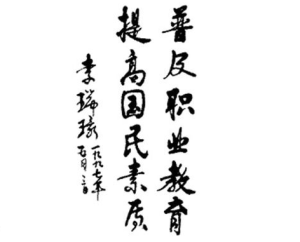 普及职业教育
提高国民素质
李瑞环
一九九七年
五月三日